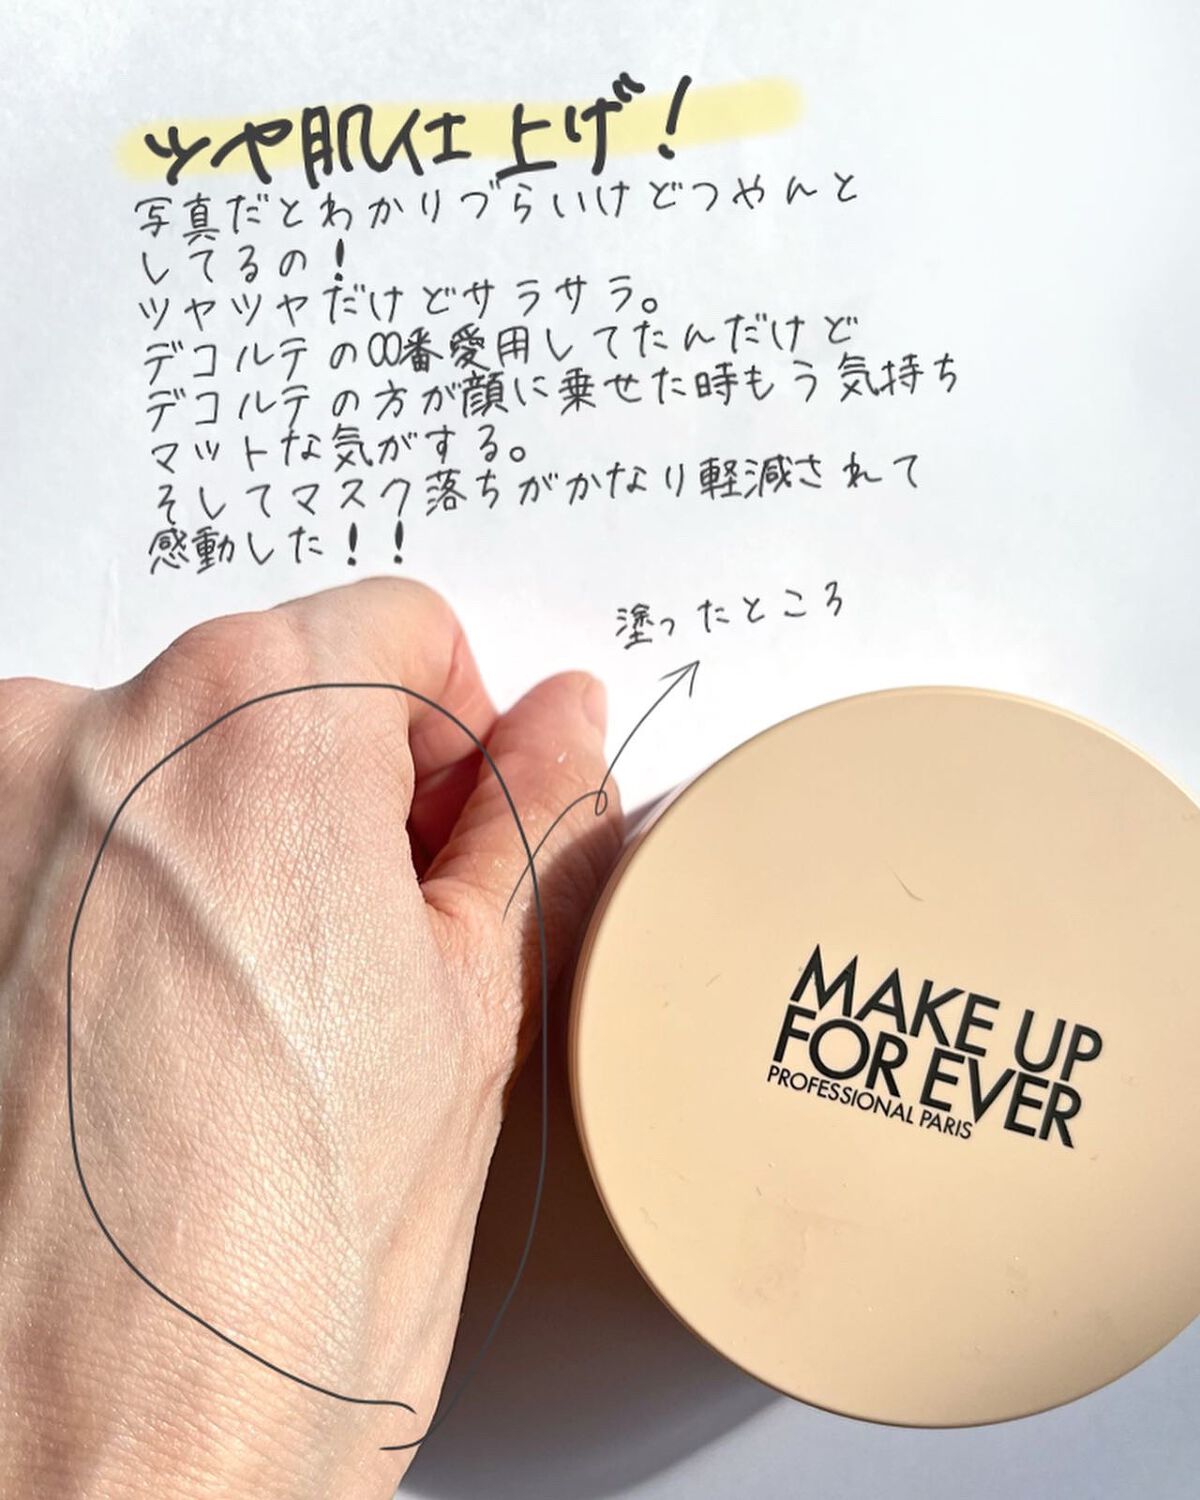 ツヤ肌仕上げ!
写真だとわかりづらいけどつやんと
してるの!
ツヤツヤだけどサラサラ。
デコルテの00番愛用してたんだけど
デコルテの方が顔に乗せた時もう気持ち
マットな気がする。
そしてマスク落ちがかなり軽減されて
感動した!!
塗ったところ
MAKE UP
FOR EVER
PROFESSIONAL PARIS